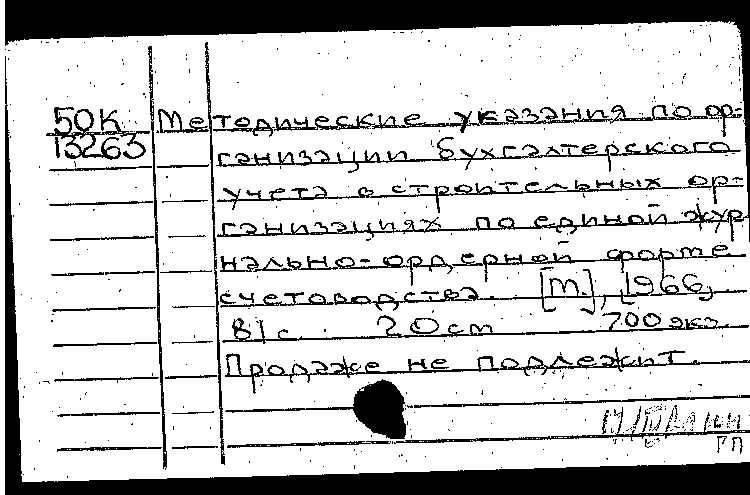 50К Методические указания по ор-
13263 ганизации бухгалтерского
учета в строительных ор-
ганизациях по единой жур
нально-ордерной форме
счетоводства. [М.], 1966,
81 с. 20 см 700 экз.
Продаже не подлежит.
ГП